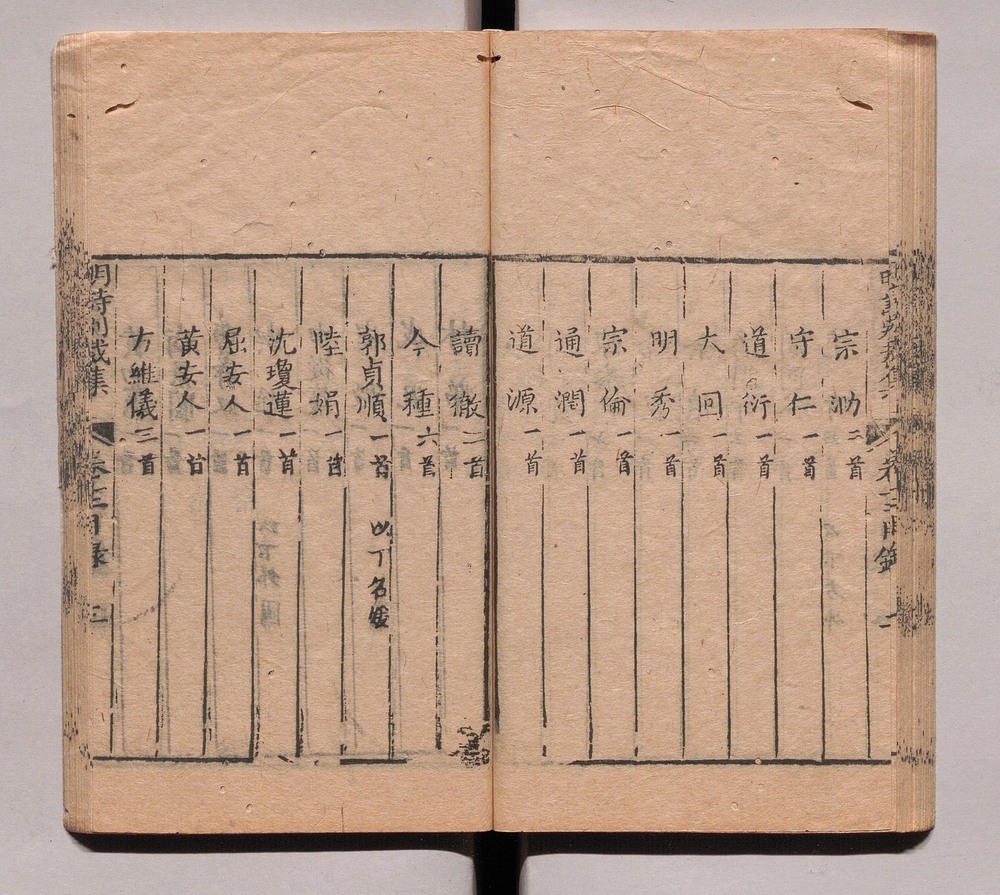 宗泐 二首
守仁 一首
道衍 一首
大回 一首
明秀 一首
宗倫 一首
通潤 一首
道源 一首
讀徹 二首
今種 六首
郭貞順 一首 以下名媛
陸娟 一首
沈瓊蓮 一首
屈安人 一首
黃安人 一首
方維儀 三首
明詩別裁集 卷十二目錄 二